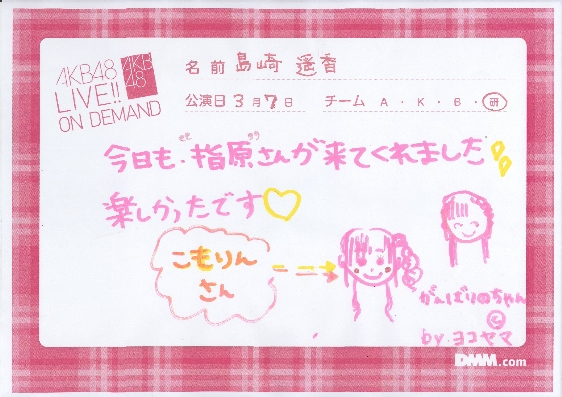 AKB48
LIVE!!
ON DEMAND
AKB
48
名前 島崎 遥香
公演日 3月7日 チーム A・K・B・研
今日も“指原”さんが来てくれました
楽しかったです♡
こもりん
さん
がんばりのちゃん
©
by ヨコヤマ
DMM.com